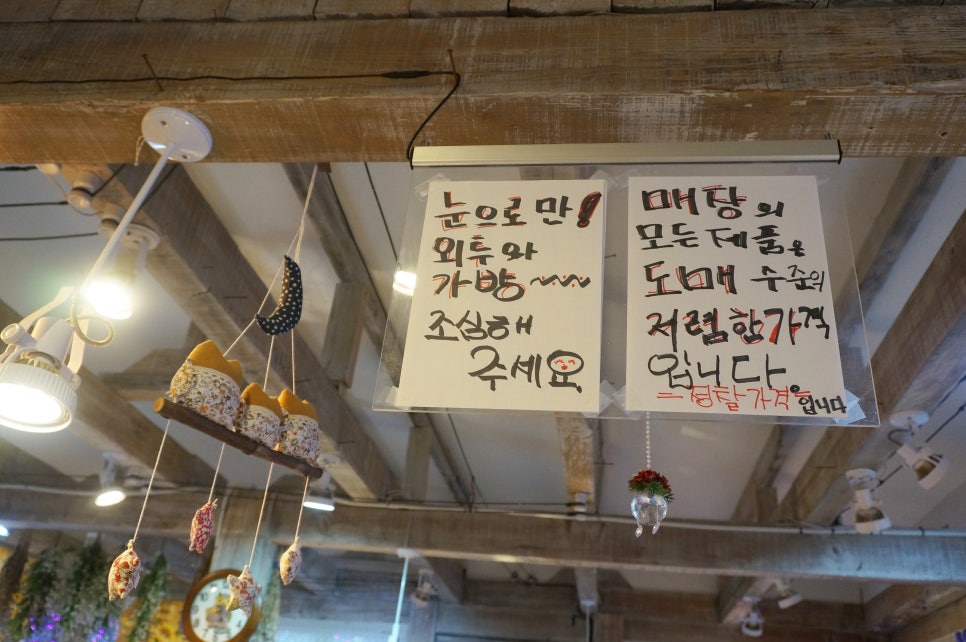 눈으로만!
외투와
가방~~~
조심해
주세요
매장의
모든 제품은
도매 수준의
저렴한가격
입니다.
=정찰가격=입니다